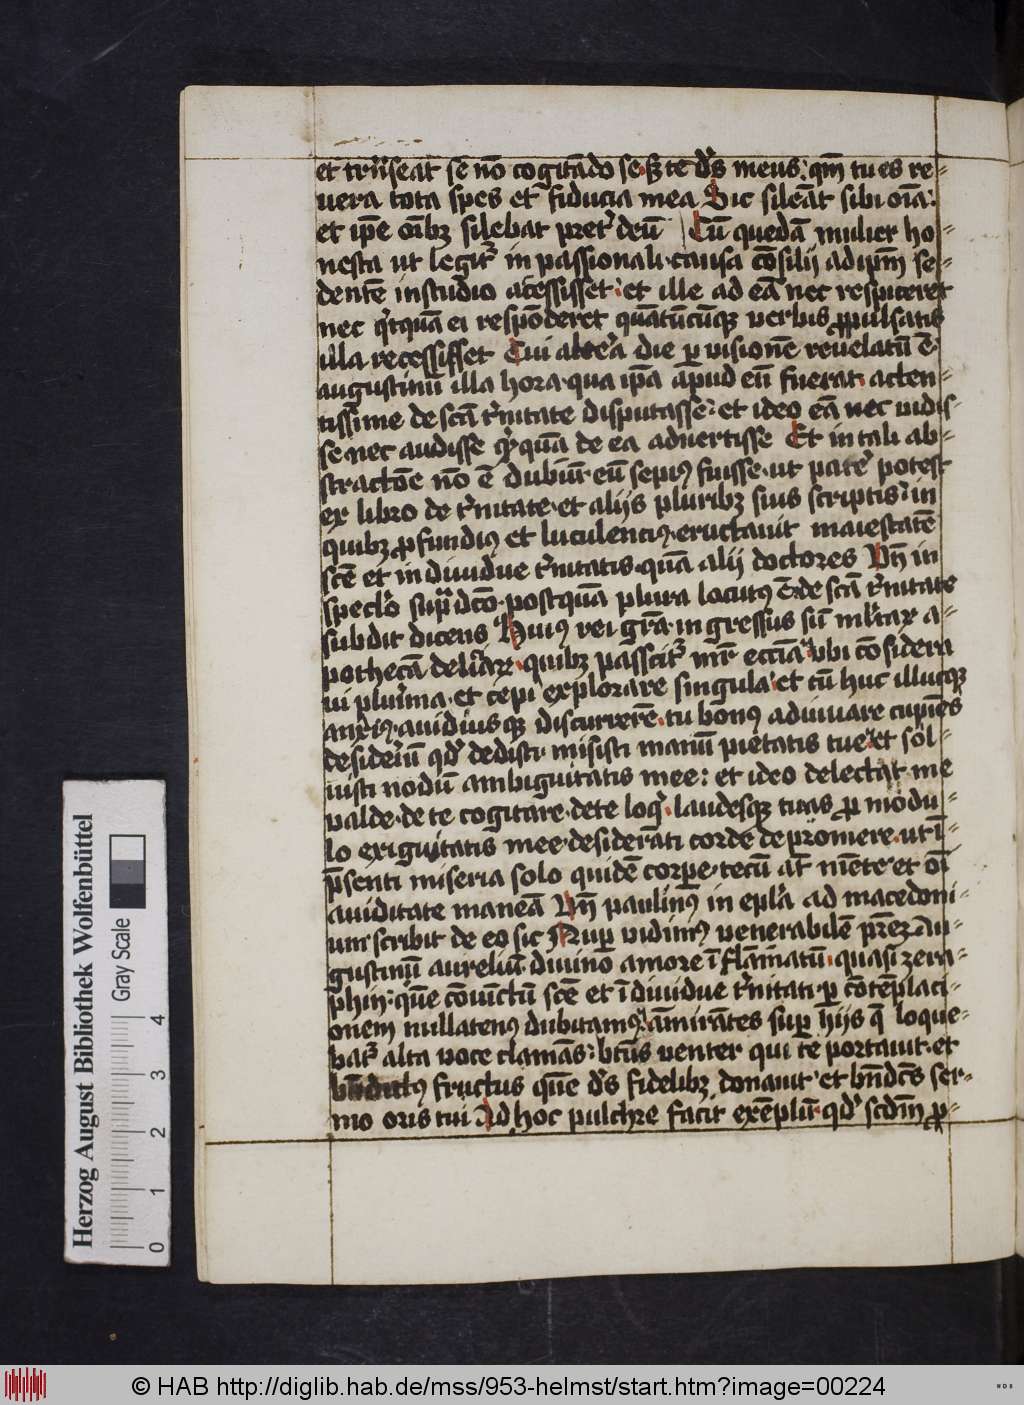 et trāseat se nō cogitādo se· sʒ te ds̄ meus: qm̄ tu es re-
uera tota spes et fiducia mea Sic sileāt sibi oīa:
et ip̄e oībꝫ silebat pret̓ deū Cū quedā mulier ho-
nesta ut legit̓ in passionali· causa cōsilij ad ip̄m se-
dentē in studio accessisset· et ille ad eā nec respiceret
nec qͥtquā ei respōderet quātūcūqꝫ verbis ꝓpulsatis
illa recessisset Cui alte̓a die ꝑ visionē reuelatū ē·
augustinū illa hora· qua ip̄a apud eū fuerat· atten-
tissime de scā t̓nitate disputasse: et ideo eā nec uidis-
se nec audisse qͥcquā de ea aduertisse Et in tali ab-
stractōe nō ē dubiū· eū sepiꝰ fuisse· ut pate̓ potest
ex libro de t̓nitate· et alijs pluribꝫ suis scriptis: in
quibꝫ ꝓfundiꝰ et luculenciꝰ· eructauit maiestatē
scē et indiuidue t̓nitatis· quā alij doctores Vn̄ in
specl̓o sup̄dcō· postquā plura locutꝰ ē de scā t̓nitate
subdit dicens Huiꝰ rei gr̄a· ingressus sū ml̓taꝝ a-
pothecā deliciaꝝ· quibꝫ pascit̓ mr̄ ecc̄ia vbi cōsidera
ui pluͥma· et cepi explorare singula· et cū huc illucqꝫ
anxiꝰ· auidiusqꝫ discurrerē· tu bonꝰ adiuuare cupiēs
desideͥiū qd̓ dedisti· misisti manū pietatis tue· et sol-
uisti nodū ambiguitatis mee: et ideo delectat me
valde· de te cogitare· de te loqͥ· laudesqꝫ tuas ꝓ modu-
lo exiguitatis mee· desiderāti corde depromere· ut ī
p̄senti miseria solo quidē corꝑe· tecū at̄ mēte· et oī
auiditate maneā Vn̄ paulinꝰ in epl̓a ad macedoni-
um scribit de eo sic Nuꝑ vidimꝰ venerabilē pr̄eꝫ Au-
gustinū aureliū· diuino amore īflāmatū· quasi zera-
phin: quē cōuictū scē et īdiuidue t̓nitati· ꝑ cōtēplaci-
onem nullatenꝰ dubitamꝰ· āmirātes suꝑ hijs q̄ loque-
bat̓ alta voce clamās: bt̄us venter qui te portauit· et
bn̄dictꝰ fructus quē ds̄ fidelibꝫ donauit· et bn̄dcūs ser-
mo oris tui Ad hoc pulchre facit exēplū· qd̓ scdm̄ ꝓ-
Herzog August Bibliothek Wolfenbüttel
Gray Scale
0 1 2 3 4
© HAB http://diglib.hab.de/mss/953-helmst/start.htm?image=00224